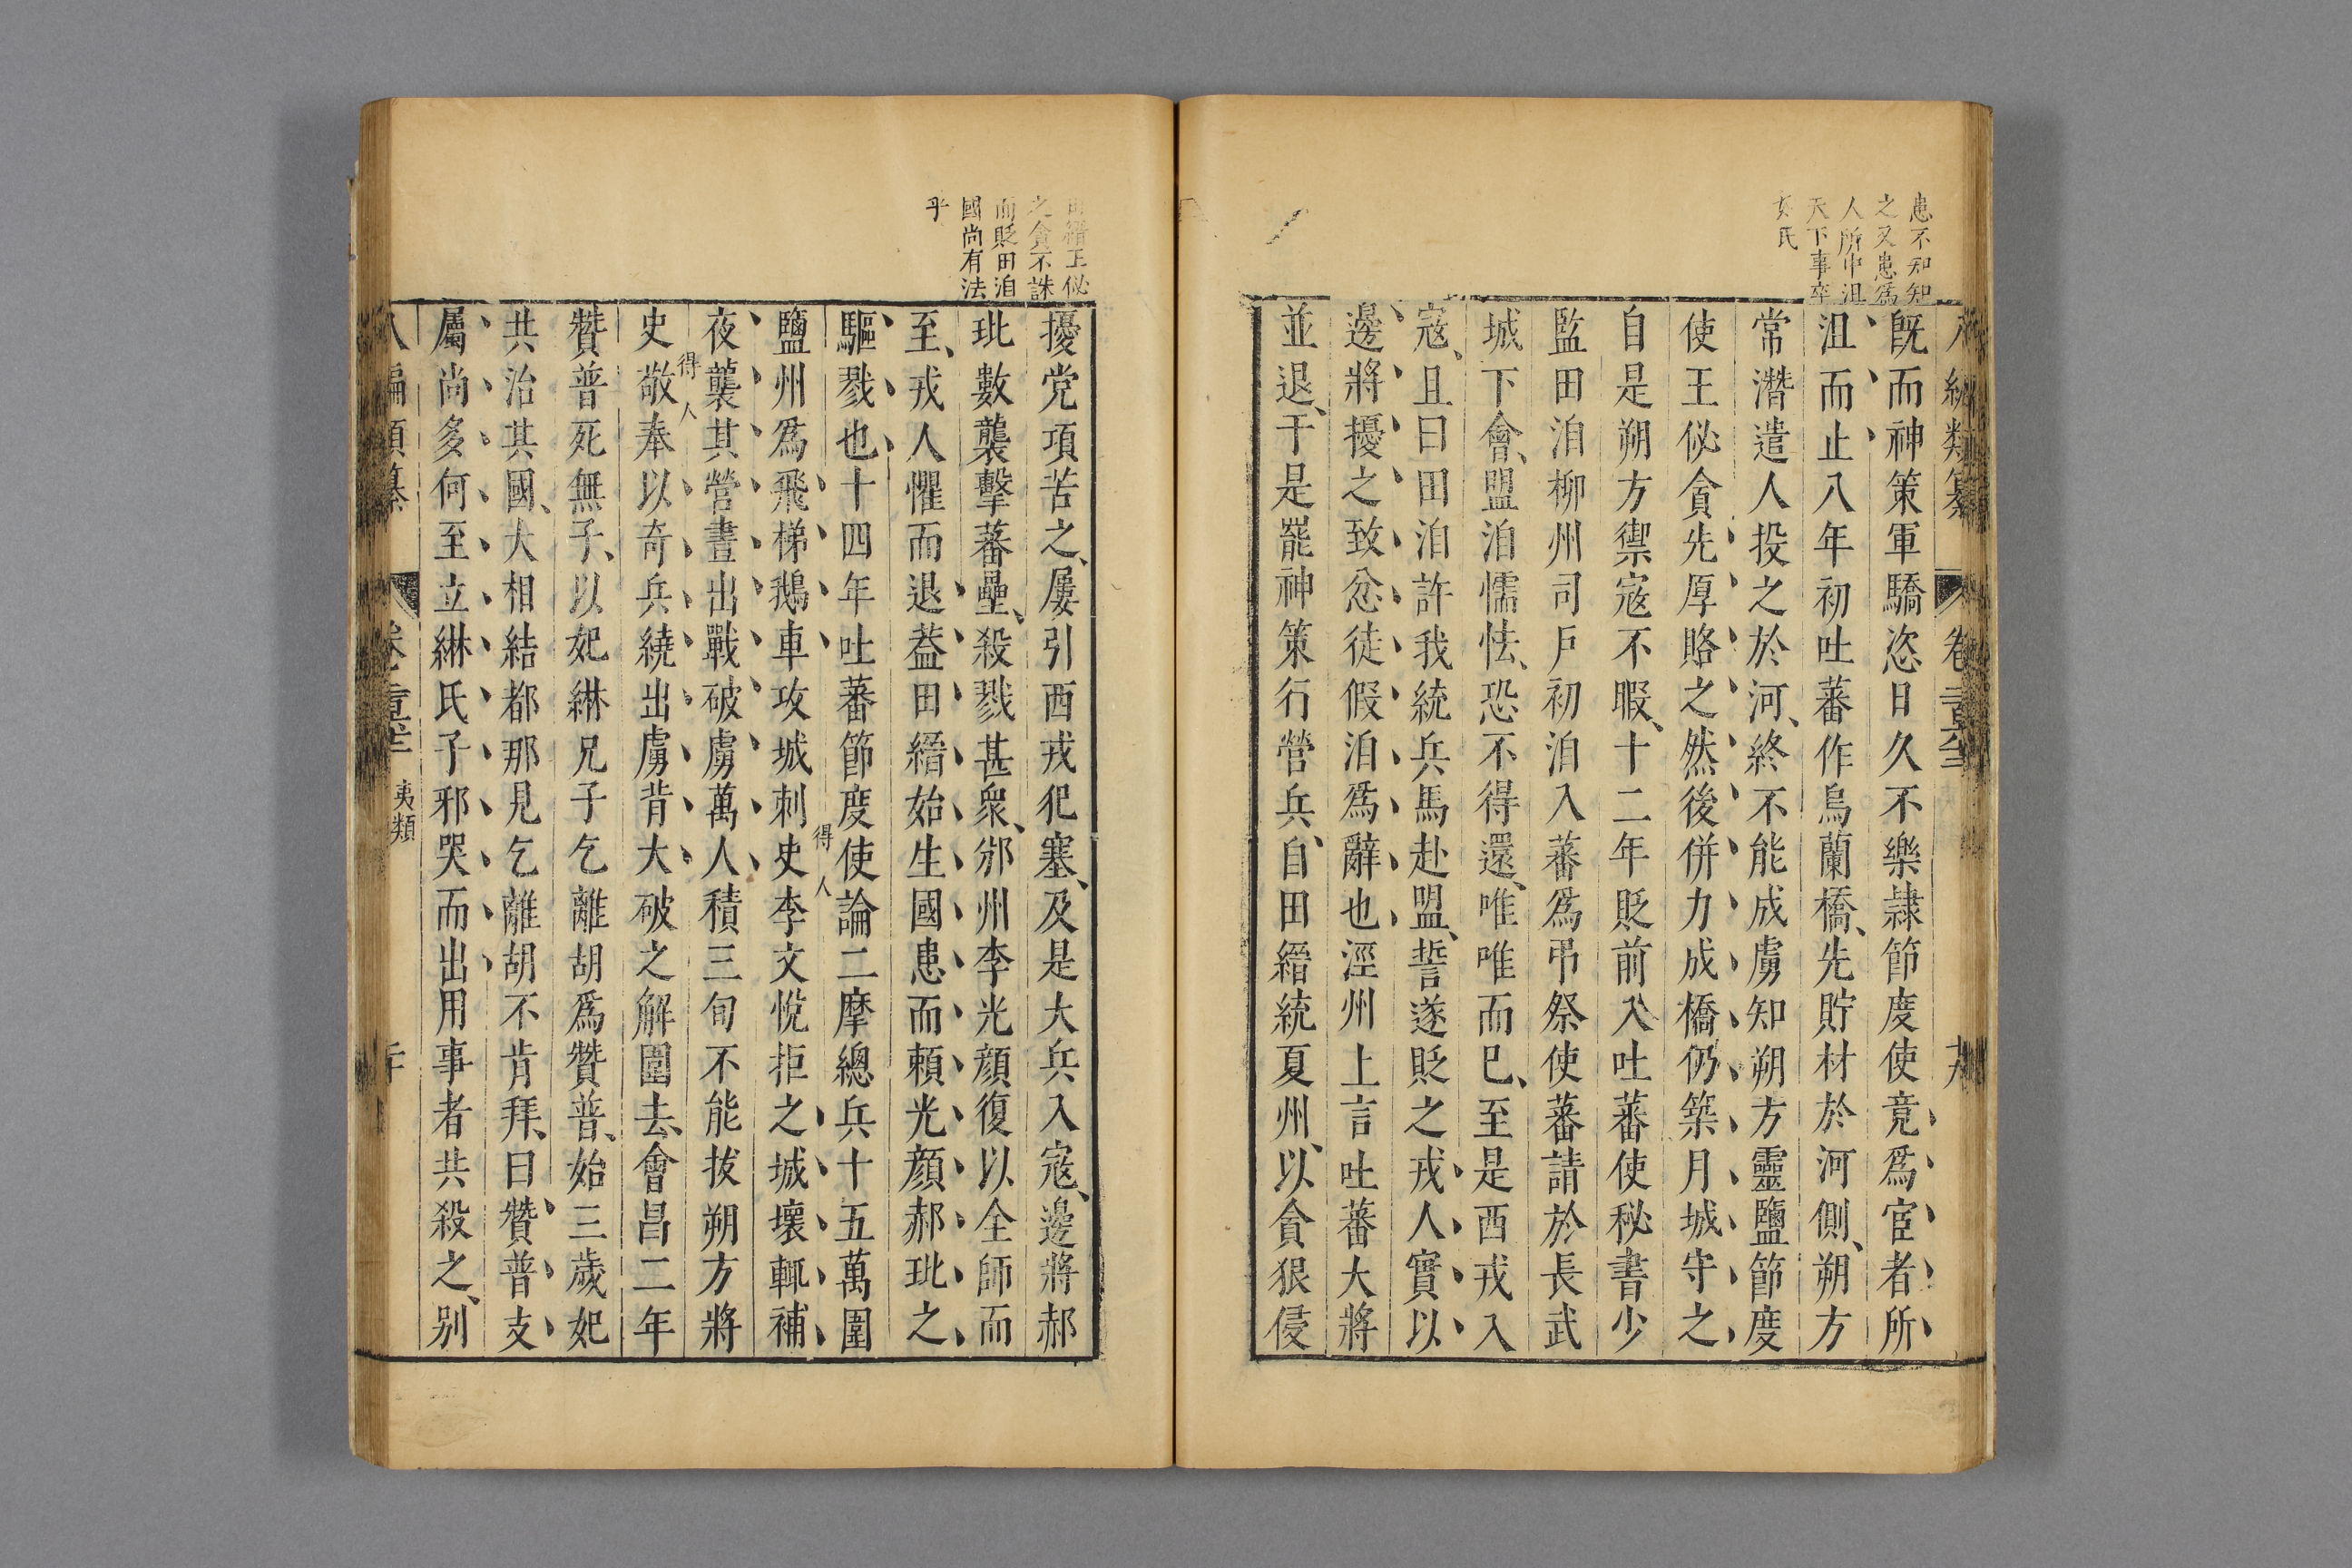 患不知知
之又患爲
人所中沮
天下事卒
類纂
既而神策軍驕恣日久不樂隷節度使竟爲宦者所
沮而止八年初吐蕃作烏蘭橋先貯材於河側朔方
常潛遣人投之於河終不能成虜知朔方靈鹽節度
使王佖貪先厚賂之然後併力成橋仍築月城守之
自是朔方禦寇不暇十二年貶前入吐蕃使秘書少
監田洎柳州司戶初洎入蕃爲弔祭使蕃請於長武
城下會盟洎懦怯恐不得還唯唯而已至是西戎入
寇且曰田洎許我統兵馬赴盟誓遂貶之戎人實以
邊將擾之致忿徒假洎爲辭也涇州上言吐蕃大將
並退于是罷神策行營兵自田縉統夏州以貪狠侵
縉王佖
之貪不誅
而貶田洎
國尚有法
乎
擾党項苦之屢引西戎犯塞及是大兵入寇邊將郝
玭數襲擊蕃壘殺戮甚衆邠州李光顔復以全師而
至戎人懼而退葢田縉始生國患而賴光顔郝玭之
驅戮也十四年吐蕃節度使論二摩總兵十五萬圍
得人
鹽州爲飛梯鵝車攻城刺史李文悅拒之城壞輒補
夜襲其營晝出戰破虜萬人積三旬不能拔朔方將
得人
史敬奉以奇兵繞出虜背大破之解圍去會昌二年
贊普死無子以妃綝兄子乞離胡爲贊普始三歲妃
共治其國大相結都那見乞離胡不肯拜曰贊普支
屬尚多何至立綝氏子邪哭而出用事者共殺之别
八編類纂
夷類